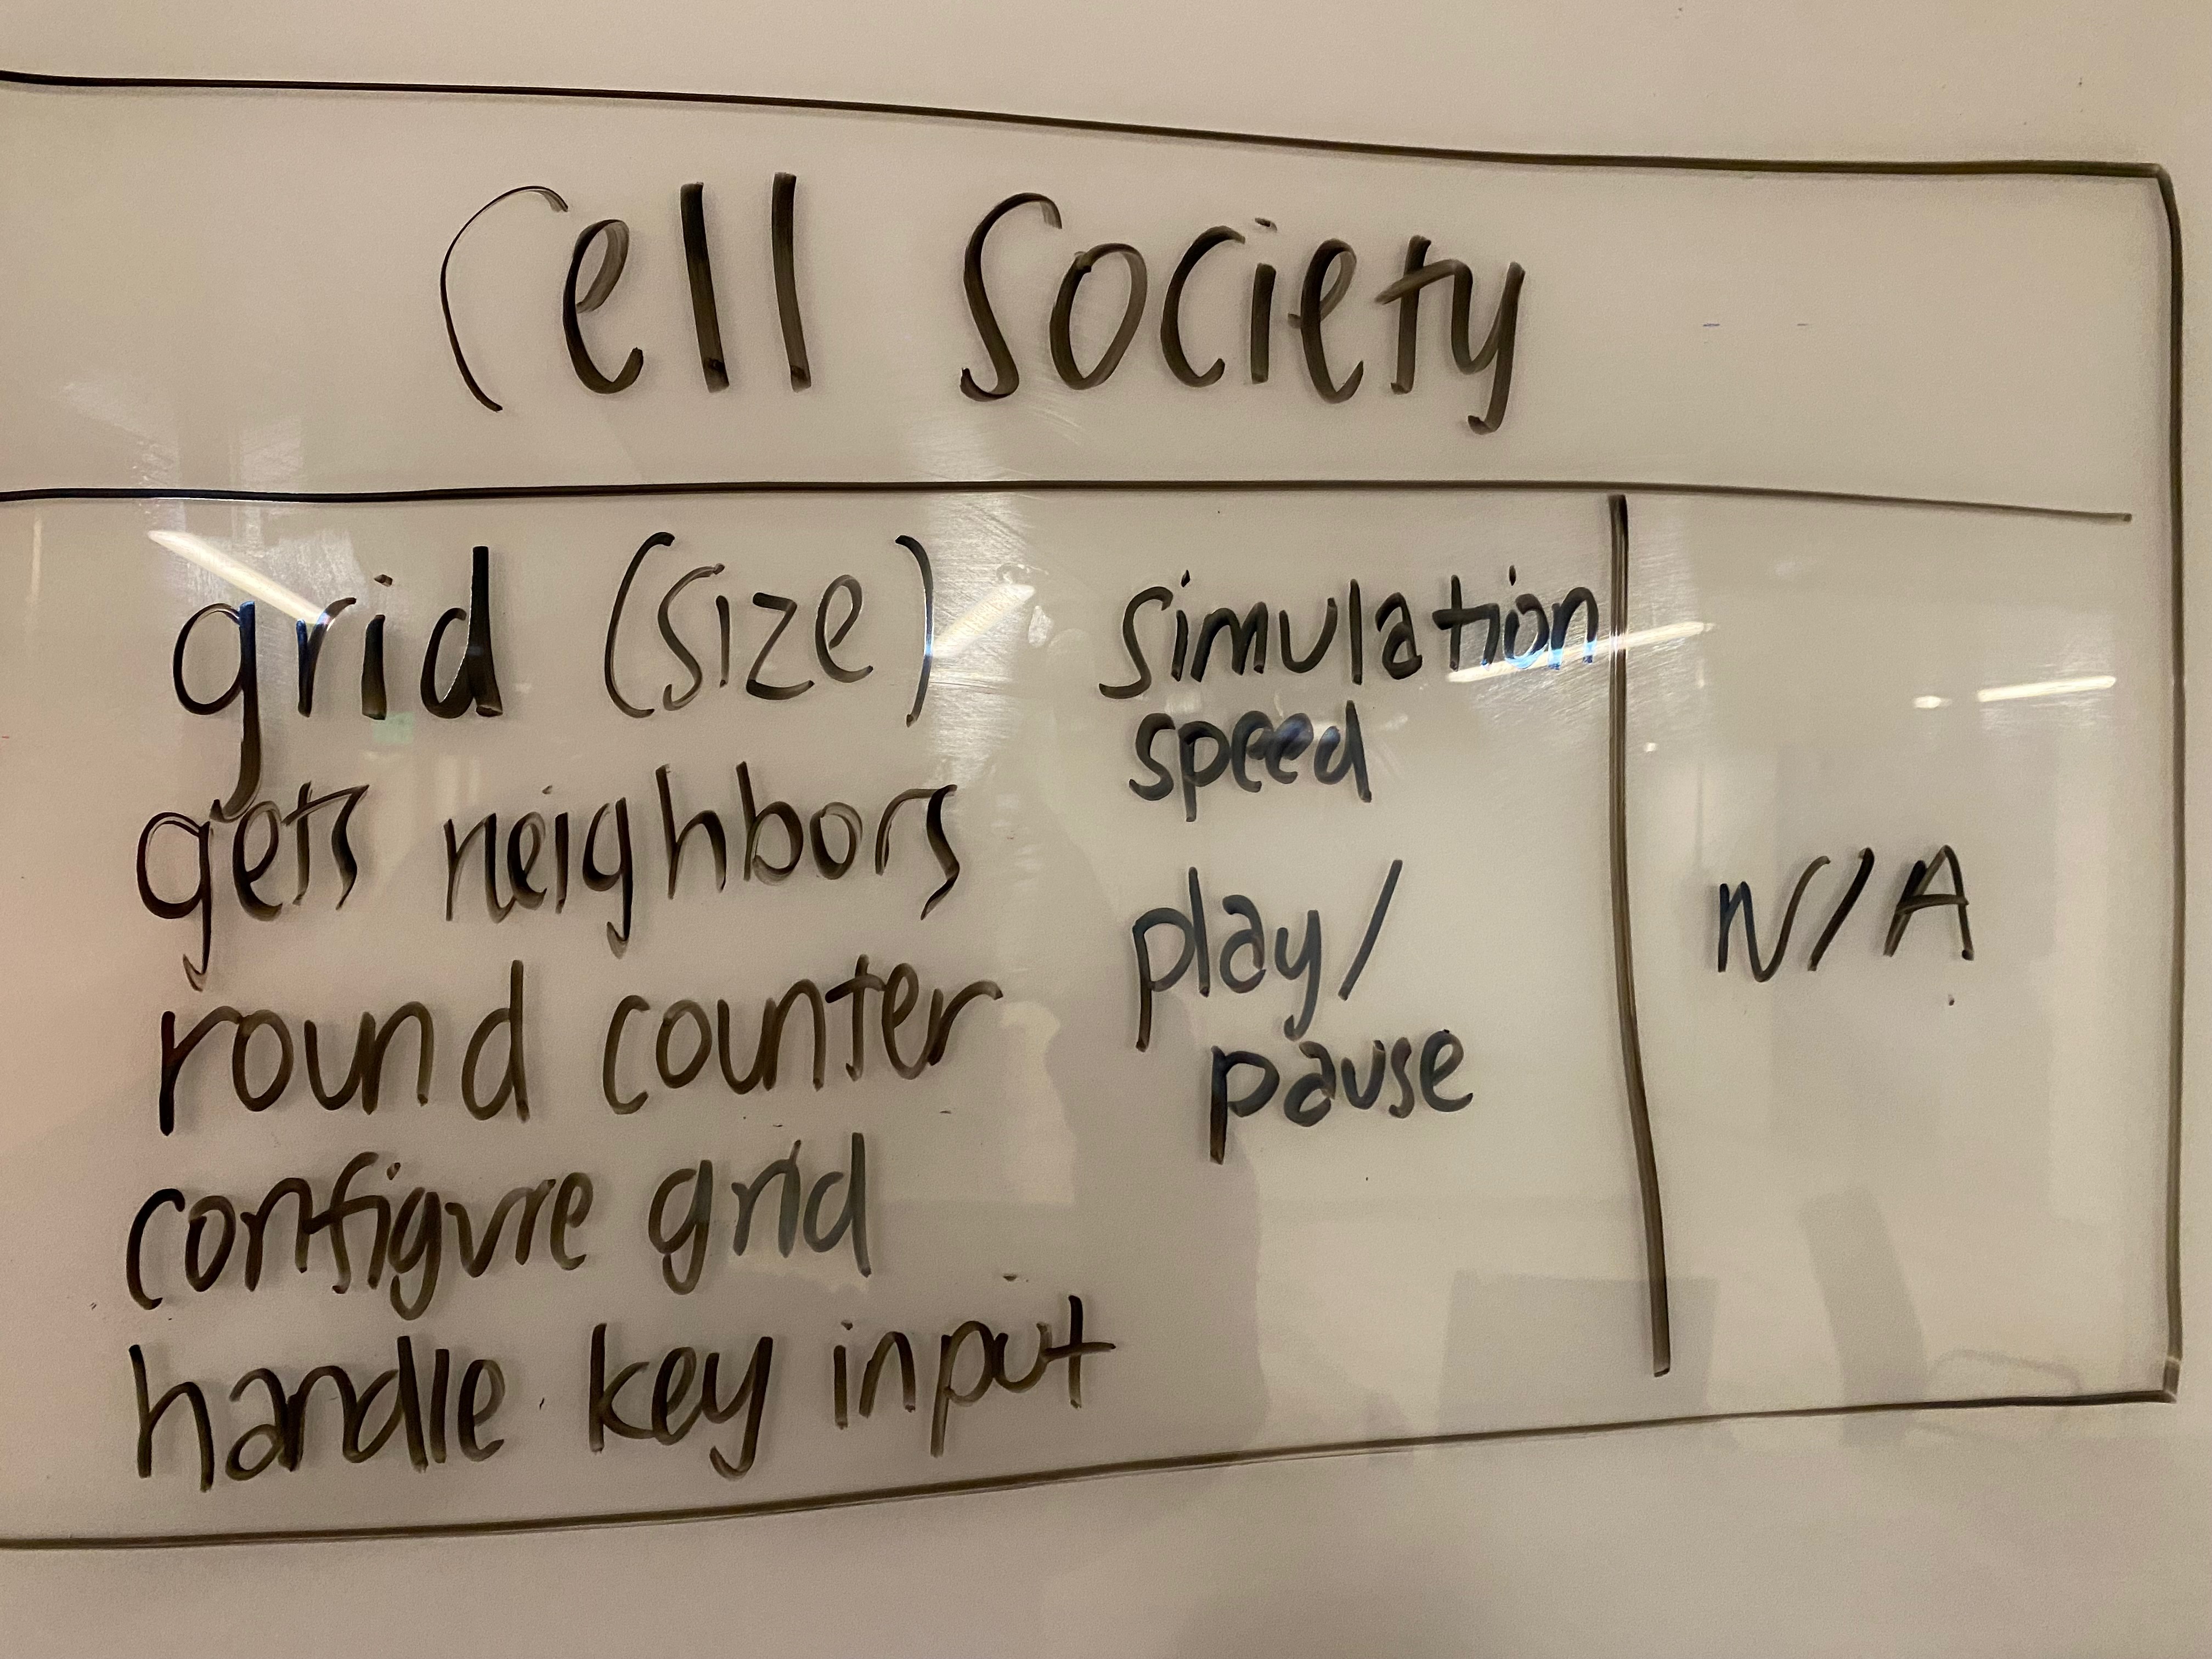 Cell Society
grid (size)
gets neighbors
round counter
configure grid
handle key input
simulation
speed
play/
pause
N/A